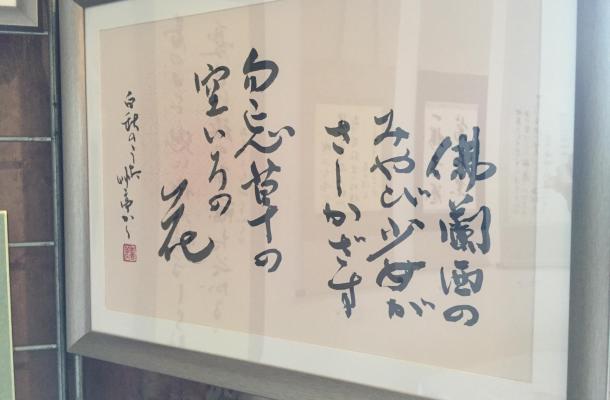 佛蘭西の
みやび少女が
さしかざす
勿忘草の
空いろの
花
白秋のうた